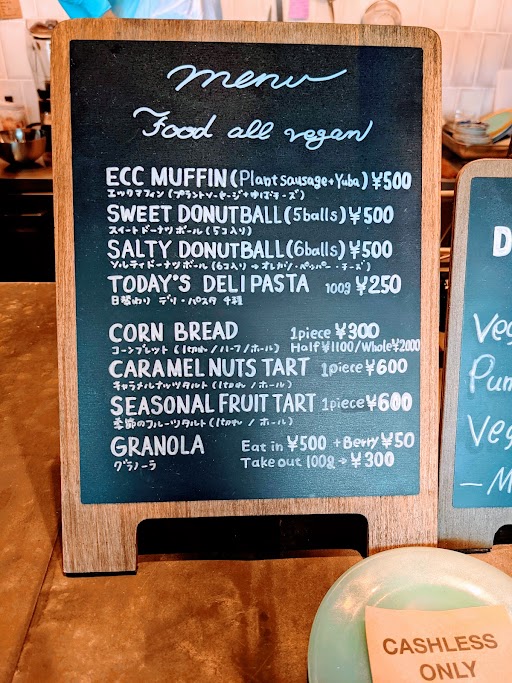 menu
Food all vegan
ECC MUFFIN (Plant sausage + Yuba) ¥500
エックマフィン (プラントソーセージ+ゆばチーズ)
SWEET DONUTBALL (5balls) ¥500
スイートドーナツボール (5コ入り)
SALTY DONUTBALL (6balls) ¥500
ソルティドーナツボール (6コ入り
TODAY'S DELI PASTA 100g ¥250
日替わり デリ・パスタ
CORN BREAD 1piece ¥300
コーンブレット (1カット/ハーフ/ホール) Half ¥1100/Whole ¥2000
CARAMEL NUTS TART 1piece ¥600
キャラメルナッツタルト (1カット/ホール)
SEASONAL FRUIT TART 1piece ¥600
季節のフルーツタルト (1カット/ホール)
GRANOLA Eat in ¥500 + Berry ¥50
グラノーラ Take out 100g → ¥300
D
Ve
Pum
Veg
-M
CASHLESS
ONLY